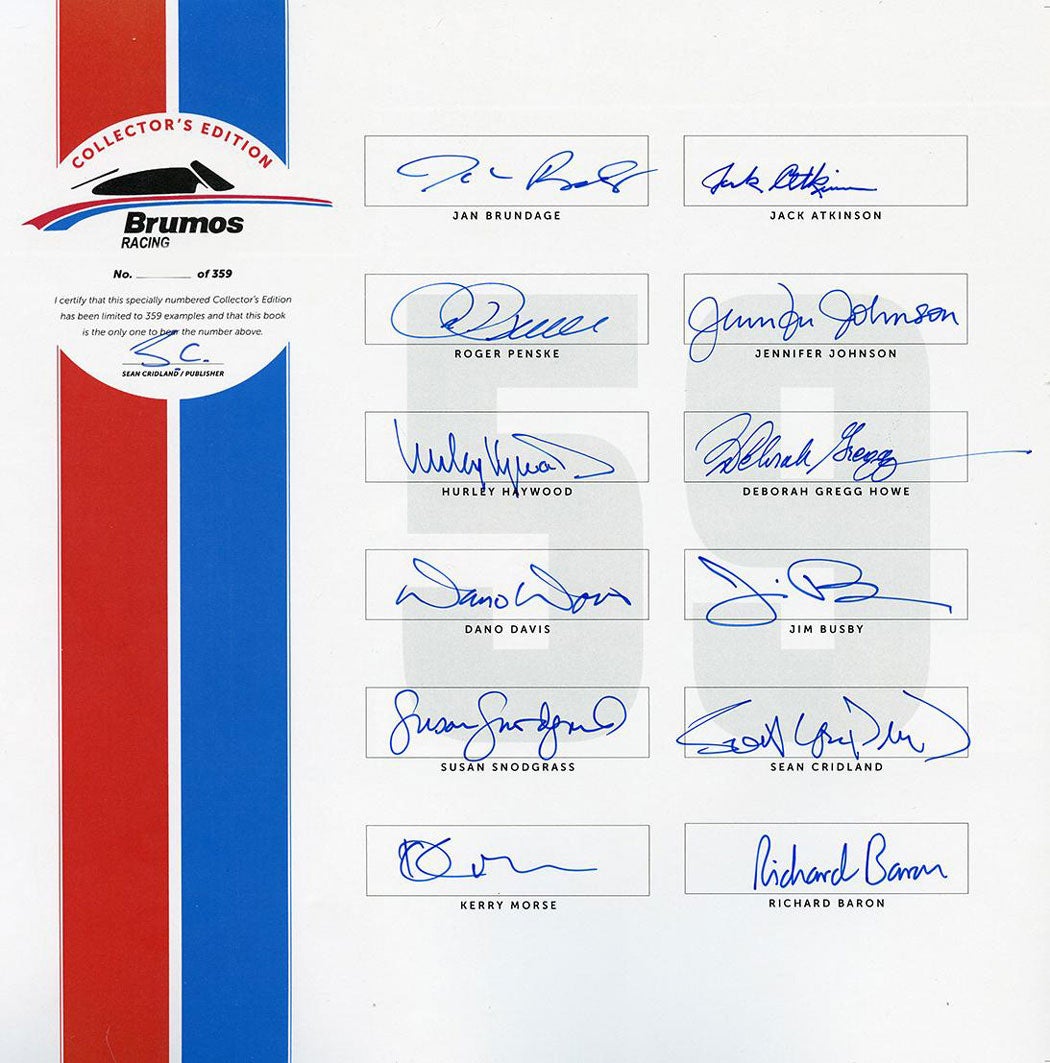 COLLECTOR'S EDITION
Brumos
RACING
No. ______ of 359
I certify that this specially numbered Collector's Edition
has been limited to 359 examples and that this book
is the only one to bear the number above.
S C.
SEAN CRIDLAND / PUBLISHER
59
JAN BRUNDAGE
Jack Atkinson
JACK ATKINSON
ROGER PENSKE
Jennifer Johnson
JENNIFER JOHNSON
Hurley Haywood
HURLEY HAYWOOD
Deborah Gregg
DEBORAH GREGG HOWE
Dano Davis
DANO DAVIS
Jim B
JIM BUSBY
Susan Snodgrass
SUSAN SNODGRASS
SEAN CRIDLAND
KERRY MORSE
Richard Baron
RICHARD BARON